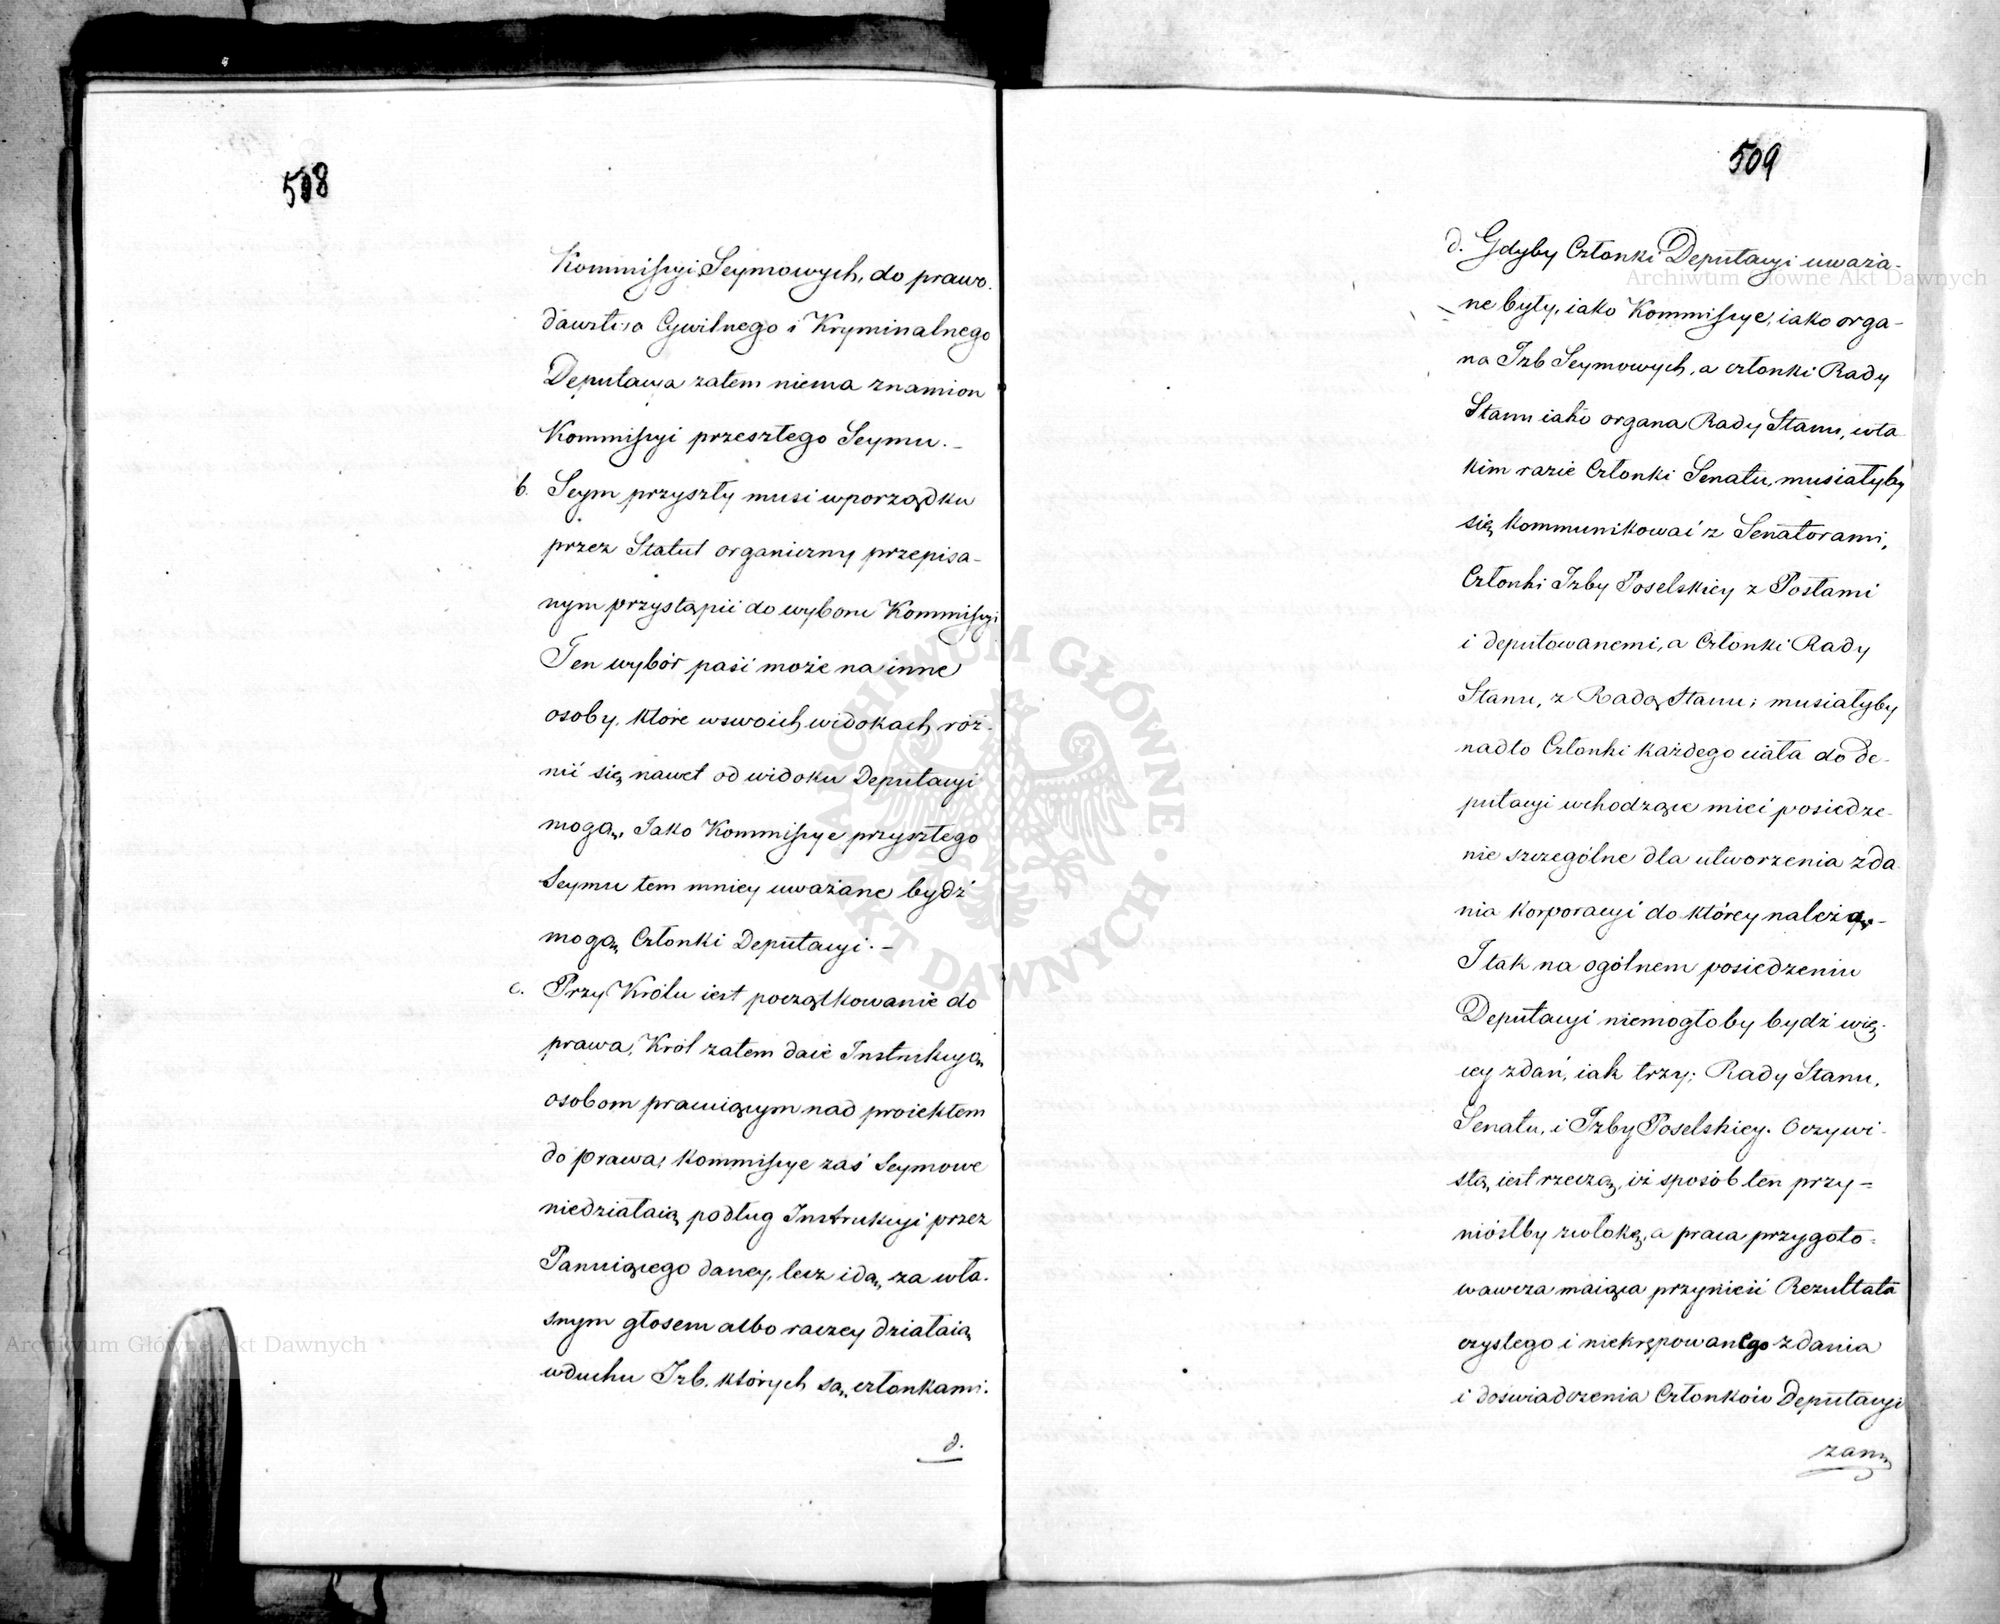 508
Kommissyi Seymowych, do prawo-
dawstwa Cywilnego i Kryminalnego
Deputacya zatem niema znamion
Kommissyi przeszłego Seymu. –
b. Seym przyszły musi w porządku
przez Statut organiczny przepisa-
nym przystąpić do wyboru Kommissyi
Ten wybór paść może na inne
osoby, które w swoich widokach róż-
nić się nawet od widoku Deputacyi
mogą, Jako Kommissye przyszłego
Seymu tem mniey uważane bydź
mogą Członki Deputacyi. –
c. Przy Królu iest początkowanie do
prawa, Król zatem daie Instrukcyą
osobom pracuiącym nad proiektem
do prawa, Kommissye zaś Seymowe
niedziałaią podług Instrukcyi przez
Panuiącego daney, lecz idą za wła-
snym głosem albo raczey działaią
w duchu Izb, których są członkami.
d.
509
d. Gdyby Członki Deputacyi uważa-
ne były, iako Kommissye, iako orga-
na Izb Seymowych, a członki Rady
Stanu iako organa Rady Stanu, w ta
kim razie Członki Senatu, musiałyby
się kommunikować z Senatorami,
Członki Izby Poselskiey z Posłami
i deputowanemi, a Członki Rady
Stanu, z Radą Stanu; musiałyby
nadto Członki każdego ciała do de-
putacyi wchodzące mieć posiedze-
nie szczególne dla utworzenia zda-
nia korporacyi do którey należą. –
I tak na ogólnem posiedzeniu
Deputacyi niemogłoby bydź wię-
cey zdań, iak trzy; Rady Stanu,
Senatu, i Izby Poselskiey. Oczywi-
stą iest rzeczą, iż sposób ten przy=
niósłby zwłokę, a praca przygoto=
wawcza maiąca przynieść Rezultata
czystego i niekrępowanego zdania
i doświadczenia Członków Deputacyi
Archiwum Główne Akt Dawnych
Archiwum Główne Akt Dawnych
ARCHIWUM GŁÓWNE AKT DAWNYCH